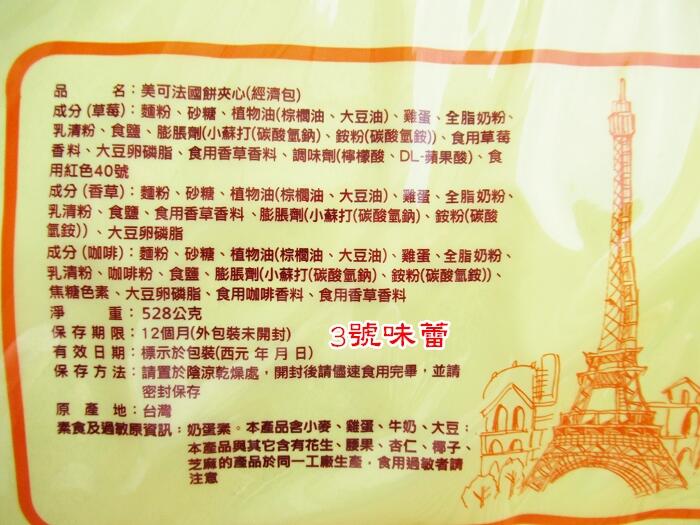 品　　　名：美可法國餅夾心(經濟包)
成分(草莓)：麵粉、砂糖、植物油(棕櫚油、大豆油)、雞蛋、全脂奶粉、
乳清粉、食鹽、膨脹劑(小蘇打(碳酸氫鈉)、銨粉(碳酸氫銨))、食用草莓
香料、大豆卵磷脂、食用香草香料、調味劑(檸檬酸、DL-蘋果酸)、食
用紅色40號
成分(香草)：麵粉、砂糖、植物油(棕櫚油、大豆油)、雞蛋、全脂奶粉、
乳清粉、食鹽、食用香草香料、膨脹劑(小蘇打(碳酸氫鈉)、銨粉(碳酸
氫銨))、大豆卵磷脂
成分(咖啡)：麵粉、砂糖、植物油(棕櫚油、大豆油)、雞蛋、全脂奶粉、
乳清粉、咖啡粉、食鹽、膨脹劑(小蘇打(碳酸氫鈉)、銨粉(碳酸氫銨))、
焦糖色素、大豆卵磷脂、食用咖啡香料、食用香草香料
淨　　　重：528公克
保存期限：12個月(外包裝未開封)
3號味蕾
有效日期：標示於包裝(西元 年 月 日)
保存方法：請置於陰涼乾燥處，開封後請儘速食用完畢，並請
密封保存
原 產 地：台灣
素食及過敏原資訊：奶蛋素。本產品含小麥、雞蛋、牛奶、大豆；
本產品與其它含有花生、腰果、杏仁、椰子、
芝麻的產品於同一工廠生產，食用過敏者請
注意